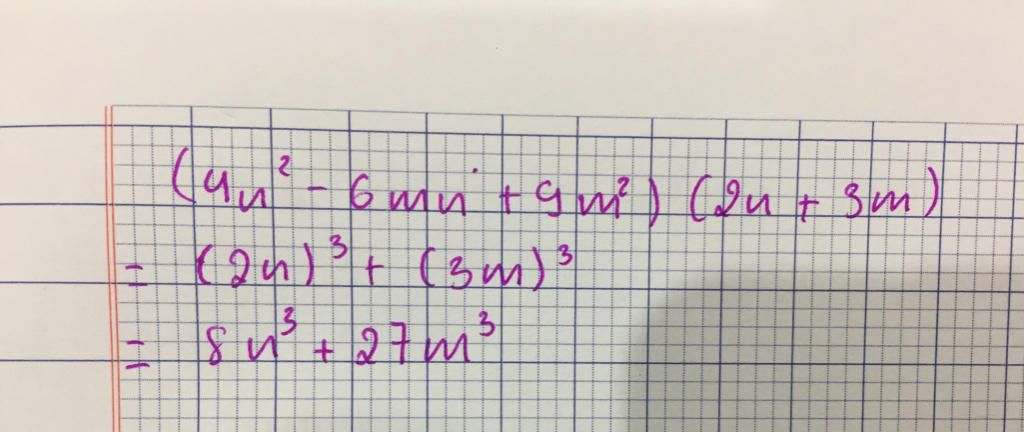 (4n² - 6mn + 9m²) (2n + 3m)
= (2n)³ + (3m)³
= 8n³ + 27m³